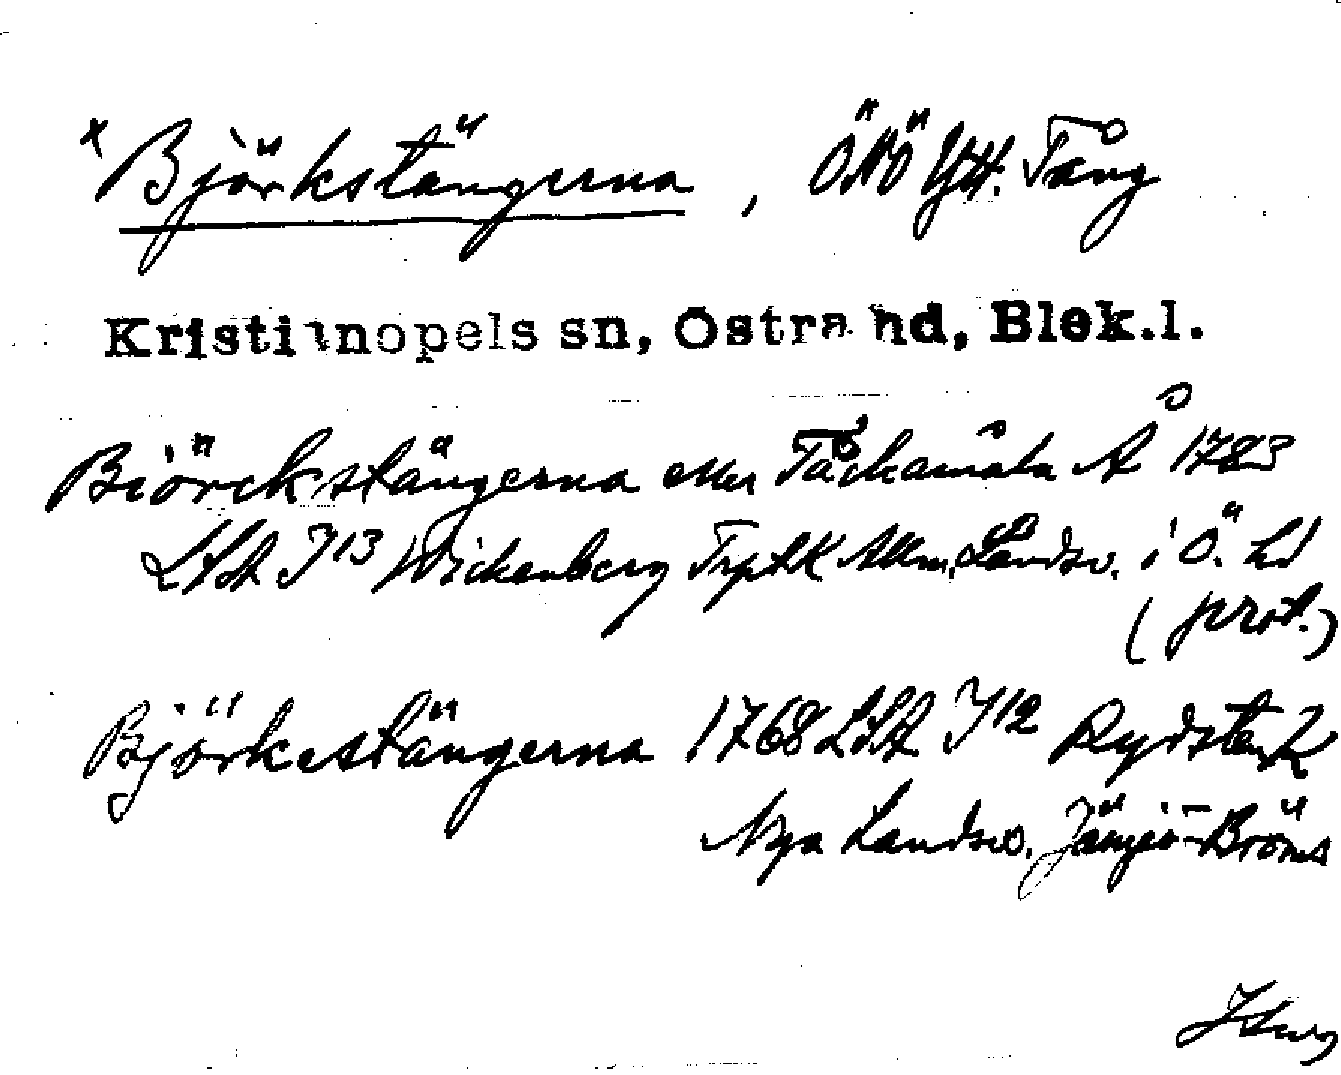 *Björkstängerna, ÖNÖ Ytt. Tång
Kristianopels sn, Östra hd, Blek.l.
Biörckstängerna eller Tåckamåla Å 1783
LSA J13 Wickenberg TrptK Allm. Landsv. i Ö. hd
(prot.)
Björkestängerna 1768 LSA J12 Rydsterk
Nya Landsv. Jämjö-Bröms